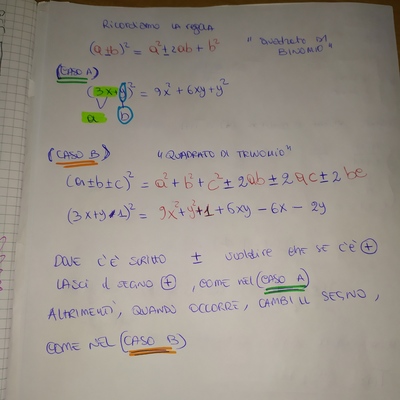 Ricordiamo la regola
(a±b)² = a² ± 2ab + b² "Quadrato di BINOMIO"
(CASO A)
(3x+y)² = 9x² + 6xy + y²
a b
(CASO B) "QUADRATO DI TRINOMIO"
(a±b±c)² = a² + b² + c² ± 2ab ± 2ac ± 2bc
(3x+y-1)² = 9x²+y²+1+6xy-6x-2y
DOVE C'È SCRITTO ± VUOL DIRE CHE SE C'È +
LASCI IL SEGNO +, COME NEL (CASO A)
ALTRIMENTI, QUANDO OCCORRE, CAMBI IL SEGNO,
COME NEL (CASO B)